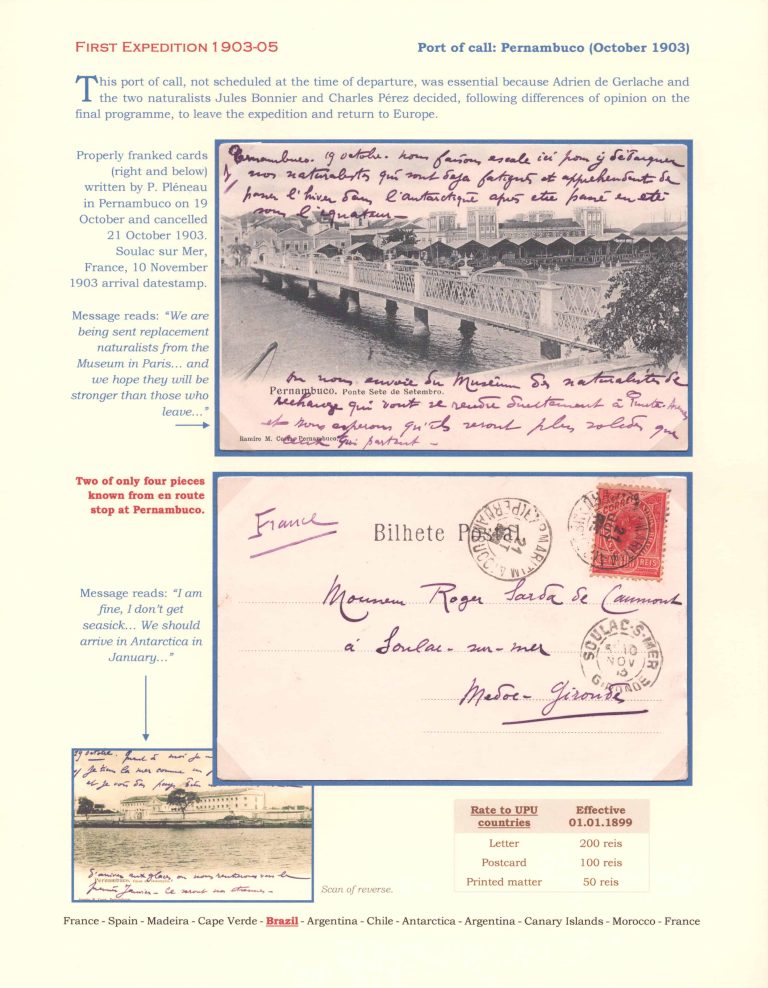 FIRST EXPEDITION 1903-05
Port of call: Pernambuco (October 1903)
This port of call, not scheduled at the time of departure, was essential because Adrien de Gerlache and
the two naturalists Jules Bonnier and Charles Pérez decided, following differences of opinion on the
final programme, to leave the expedition and return to Europe.
Properly franked cards
(right and below)
written by P. Pléneau
in Pernambuco on 19
October and cancelled
21 October 1903.
Soulac sur Mer,
France, 10 November
1903 arrival datestamp.
Message reads: “We are
being sent replacement
naturalists from the
Museum in Paris... and
we hope they will be
stronger than those who
leave...”
Pernambuco. 19 octobre. nous faisons escale ici pour y débarquer
nos naturalistes qui sont deja fatigués et appréhendent de
passer l'hiver dans l'antarctique après etre passé en été
sous l'équateur_
On nous envoie du Muséum des naturalistes de
Pernambuco. Ponte Sete de Setembro.
rechange qui vont se rendre directement à Punta-Arenas
et nous esperons qu'ils seront plus solides que
Ramiro M. Pernambuco.
ceux qui partent_
Two of only four pieces
known from en route
stop at Pernambuco.
France
Bilhete Postal
MARITIMA PERNAMBUCO
21
REIS
Monsieur Roger Sarda de Caumont
à Soulac-sur-mer
SOULAC-S-MER
10
NOV
GIRONDE
Medoc-Gironde
Message reads: “I am
fine, I don’t get
seasick... We should
arrive in Antarctica in
January...”
19 octobre. Quand à moi je
je tiens la mer comme un
et je vois des pays
Pernambuco.
Scan of reverse.
Rate to UPU countries
Effective 01.01.1899
Letter 200 reis
Postcard 100 reis
Printed matter 50 reis
France - Spain - Madeira - Cape Verde - Brazil - Argentina - Chile - Antarctica - Argentina - Canary Islands - Morocco - France